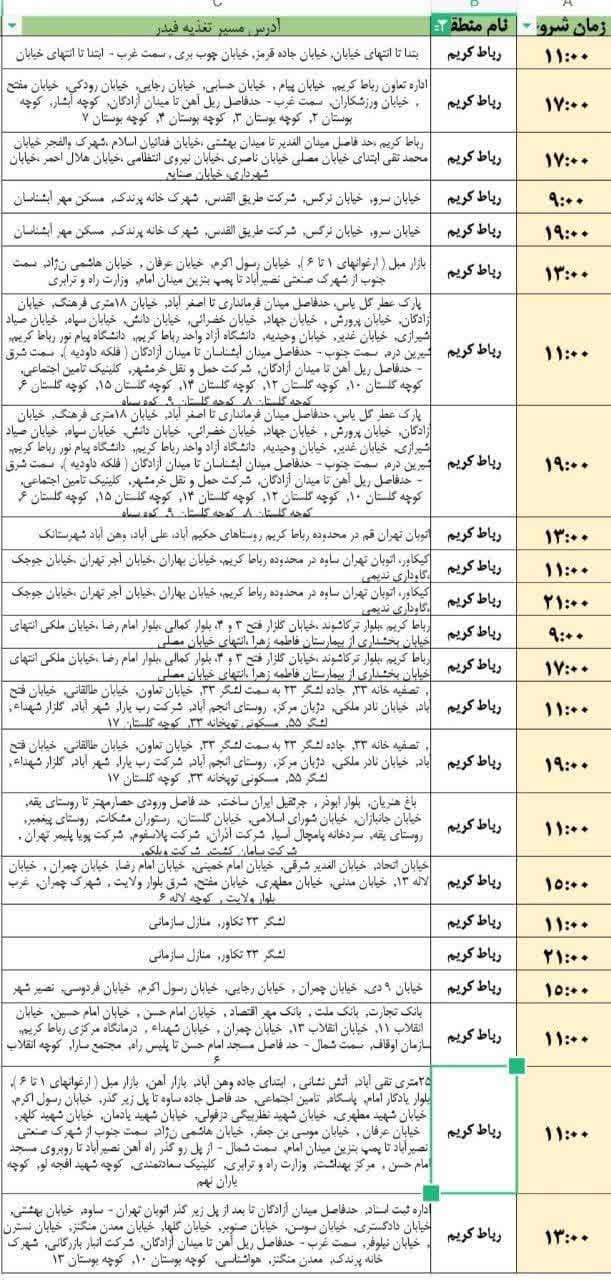 A B C
زمان شرو نام منطق آدرس مسیر تغذیه فیدر
۱۱:۰۰ رباط کریم بتدا تا انتهای خیابان, خیابان جاده قرمز, خیابان چوب بری , سمت غرب - ابتدا تا انتهای خیابان
۱۷:۰۰ رباط کریم اداره تعاون رباط کریم, خیابان پیام , خیابان حسابی, خیابان رجایی, خیابان رودکی, خیابان مفتح
, خیابان ورزشکاران, سمت غرب - حدفاصل ریل آهن تا میدان آزادگان, کوچه آبشار, کوچه
بوستان ۲, کوچه بوستان ۳, کوچه بوستان ۴, کوچه بوستان ۷
۱۷:۰۰ رباط کریم رباط کریم ،حد فاصل میدان الغدیر تا میدان بهشتی ،خیابان فدائیان اسلام ،شهرک والفجر خیابان
محمد تقی ابتدای خیابان مصلی خیابان ناصری ،خیابان نیروی انتظامی ،خیابان هلال احمر ،خیابان
شهرداری، خیابان صنایع
۹:۰۰ رباط کریم خیابان سرو, خیابان نرگس, شرکت طریق القدس, شهرک خانه پرندک, مسکن مهر آبشناسان
۱۹:۰۰ رباط کریم خیابان سرو, خیابان نرگس, شرکت طریق القدس, شهرک خانه پرندک, مسکن مهر آبشناسان
۱۳:۰۰ رباط کریم بازار مبل ( ارغوانهای ۱ تا ۶ ), خیابان رسول اکرم, خیابان عرفان , خیابان هاشمی نژاد, سمت
جنوب از شهرک صنعتی نصیرآباد تا پمپ بنزین میدان امام, وزارت راه و ترابری
۱۱:۰۰ رباط کریم پارک عطر گل یاس, حدفاصل میدان فرمانداری تا اصغر آباد, خیابان ۱۸متری فرهنگ, خیابان
زادگان, خیابان پرورش , خیابان جهاد, خیابان خضرائی, خیابان دانش, خیابان سپاه, خیابان صیاد
شیرازی, خیابان غدیر, خیابان وحیدیه, دانشگاه آزاد واحد رباط کریم, دانشگاه پیام نور رباط کریم,
شیرین دره, سمت جنوب - حدفاصل میدان آبشناسان تا میدان آزادگان ( فلکه داودیه ), سمت شرق
- حدفاصل ریل آهن تا میدان آزادگان, شرکت حمل و نقل خرمشهر, کلینیک تامین اجتماعی,
کوچه گلستان ۱۰, کوچه گلستان ۱۲, کوچه گلستان ۱۴, کوچه گلستان ۱۵, کوچه گلستان ۶,
کوچه گلستان ۸, کوچه گلستان ۹, کوه سپاه
۱۹:۰۰ رباط کریم پارک عطر گل یاس, حدفاصل میدان فرمانداری تا اصغر آباد, خیابان ۱۸متری فرهنگ, خیابان
زادگان, خیابان پرورش , خیابان جهاد, خیابان خضرائی, خیابان دانش, خیابان سپاه, خیابان صیاد
شیرازی, خیابان غدیر, خیابان وحیدیه, دانشگاه آزاد واحد رباط کریم, دانشگاه پیام نور رباط کریم,
شیرین دره, سمت جنوب - حدفاصل میدان آبشناسان تا میدان آزادگان ( فلکه داودیه ), سمت شرق
- حدفاصل ریل آهن تا میدان آزادگان, شرکت حمل و نقل خرمشهر, کلینیک تامین اجتماعی,
کوچه گلستان ۱۰, کوچه گلستان ۱۲, کوچه گلستان ۱۴, کوچه گلستان ۱۵, کوچه گلستان ۶,
کوچه گلستان ۸, کوچه گلستان ۹, کوه سپاه
۱۳:۰۰ رباط کریم اتوبان تهران قم در محدوده رباط کریم روستاهای حکیم آباد، علی آباد، وهن آباد شهرستانک
۱۱:۰۰ رباط کریم کیکاور، اتوبان تهران ساوه در محدوده رباط کریم، خیابان بهاران، خیابان آجر تهران ،خیابان جوجک
،گاوداری ندیمی
۲۱:۰۰ رباط کریم کیکاور، اتوبان تهران ساوه در محدوده رباط کریم، خیابان بهاران، خیابان آجر تهران ،خیابان جوجک
،گاوداری ندیمی
۹:۰۰ رباط کریم رباط کریم ،بلوار ترکاشوند ،خیابان گلزار فتح ۳ و ۴، بلوار کمالی ،بلوار امام رضا ،خیابان ملکی انتهای
خیابان بخشداری از بیمارستان فاطمه زهرا ،انتهای خیابان مصلی
۱۷:۰۰ رباط کریم رباط کریم ،بلوار ترکاشوند ،خیابان گلزار فتح ۳ و ۴، بلوار کمالی ،بلوار امام رضا ،خیابان ملکی انتهای
خیابان بخشداری از بیمارستان فاطمه زهرا ،انتهای خیابان مصلی
۱۱:۰۰ رباط کریم , تصفیه خانه ۳۳, جاده لشگر ۲۳ به سمت لشگر ۳۳, خیابان تعاون, خیابان طالقانی, خیابان فتح
باد, خیابان نادر ملکی, دژبان مرکز, روستای انجم آباد, شرکت رب یارا, شهر آباد, گلزار شهداء,
لشگر ۵۵, مسکونی توپخانه ۳۳, کوچه گلستان ۱۷
۱۹:۰۰ رباط کریم , تصفیه خانه ۳۳, جاده لشگر ۲۳ به سمت لشگر ۳۳, خیابان تعاون, خیابان طالقانی, خیابان فتح
باد, خیابان نادر ملکی, دژبان مرکز, روستای انجم آباد, شرکت رب یارا, شهر آباد, گلزار شهداء,
لشگر ۵۵, مسکونی توپخانه ۳۳, کوچه گلستان ۱۷
۱۱:۰۰ رباط کریم باغ هنریان, بلوار ابوذر , جرثقیل ایران ساخت, حد فاصل ورودی حصارمهتر تا روستای یقه,
خیابان جانبازان, خیابان شورای اسلامی, خیابان گلستان, رستوران مشکات, روستای پیغمبر,
روستای یقه, سردخانه پامچال آسیا, شرکت آذران, شرکت پلاسفوم, شرکت پویا پلیمر تهران ,
شرکت سامان کشت, شرکت ویلکو,
۱۵:۰۰ رباط کریم خیابان اتحاد, خیابان الغدیر شرقی, خیابان امام خمینی, خیابان امام رضا, خیابان چمران , خیابان
لاله ۱۳, خیابان مدنی, خیابان مطهری, خیابان مفتح, شرق بلوار ولایت , شهرک چمران, غرب
بلوار ولایت , کوچه لاله ۶
۱۱:۰۰ رباط کریم لشگر ۲۳ تکاور, منازل سازمانی
۲۱:۰۰ رباط کریم لشگر ۲۳ تکاور, منازل سازمانی
۱۵:۰۰ رباط کریم خیابان ۹ دی, خیابان چمران , خیابان رجایی, خیابان رسول اکرم, خیابان فردوسی, نصیر شهر
۱۱:۰۰ رباط کریم بانک تجارت, بانک ملت , بانک مهر اقتصاد , خیابان امام حسن , خیابان امام حسین, خیابان
انقلاب ۱۱, خیابان انقلاب ۱۳, خیابان چمران , خیابان شهداء , درمانگاه مرکزی رباط کریم,
سازمان اوقاف, سمت شمال - حد فاصل مسجد امام حسن تا پلیس راه, مجتمع سارا, کوچه انقلاب
۶
۱۱:۰۰ رباط کریم ۲۵متری تقی آباد, آتش نشانی , ابتدای جاده وهن آباد, بازار آهن, بازار مبل ( ارغوانهای ۱ تا ۶ ),
بلوار یادگار امام, پاسگاه, تامین اجتماعی, حد فاصل جاده ساوه تا پل زیر گذر, خیابان رسول اکرم,
خیابان شهید مطهری, خیابان شهید نظربیگی دزفولی, خیابان شهید یادمان, خیابان شهید کلهر,
خیابان عرفان , خیابان موسی بن جعفر, خیابان هاشمی نژاد, سمت جنوب از شهرک صنعتی
نصیرآباد تا پمپ بنزین میدان امام, سمت شمال - از پل رو گذر راه آهن نصیرآباد تا روبروی مسجد
امام حسن , مرکز بهداشت, وزارت راه و ترابری, کلینیک سعادتمندی, کوچه شهید افجه لو, کوچه
یاران نهم
۱۳:۰۰ رباط کریم اداره ثبت اسناد, حدفاصل میدان آزادگان تا بعد از پل زیر گذر اتوبان تهران - ساوه, خیابان بهشتی,
خیابان دادگستری, خیابان سوسن, خیابان صنوبر, خیابان گلها, خیابان معدن منگنز, خیابان نسترن
, خیابان نیلوفر, سمت غرب - حدفاصل ریل آهن تا میدان آزادگان, شرکت انبار بازرگانی, شهرک
خانه پرندک, معدن منگنز, هواشناسی, کوچه بوستان ۱۰, کوچه بوستان ۱۳